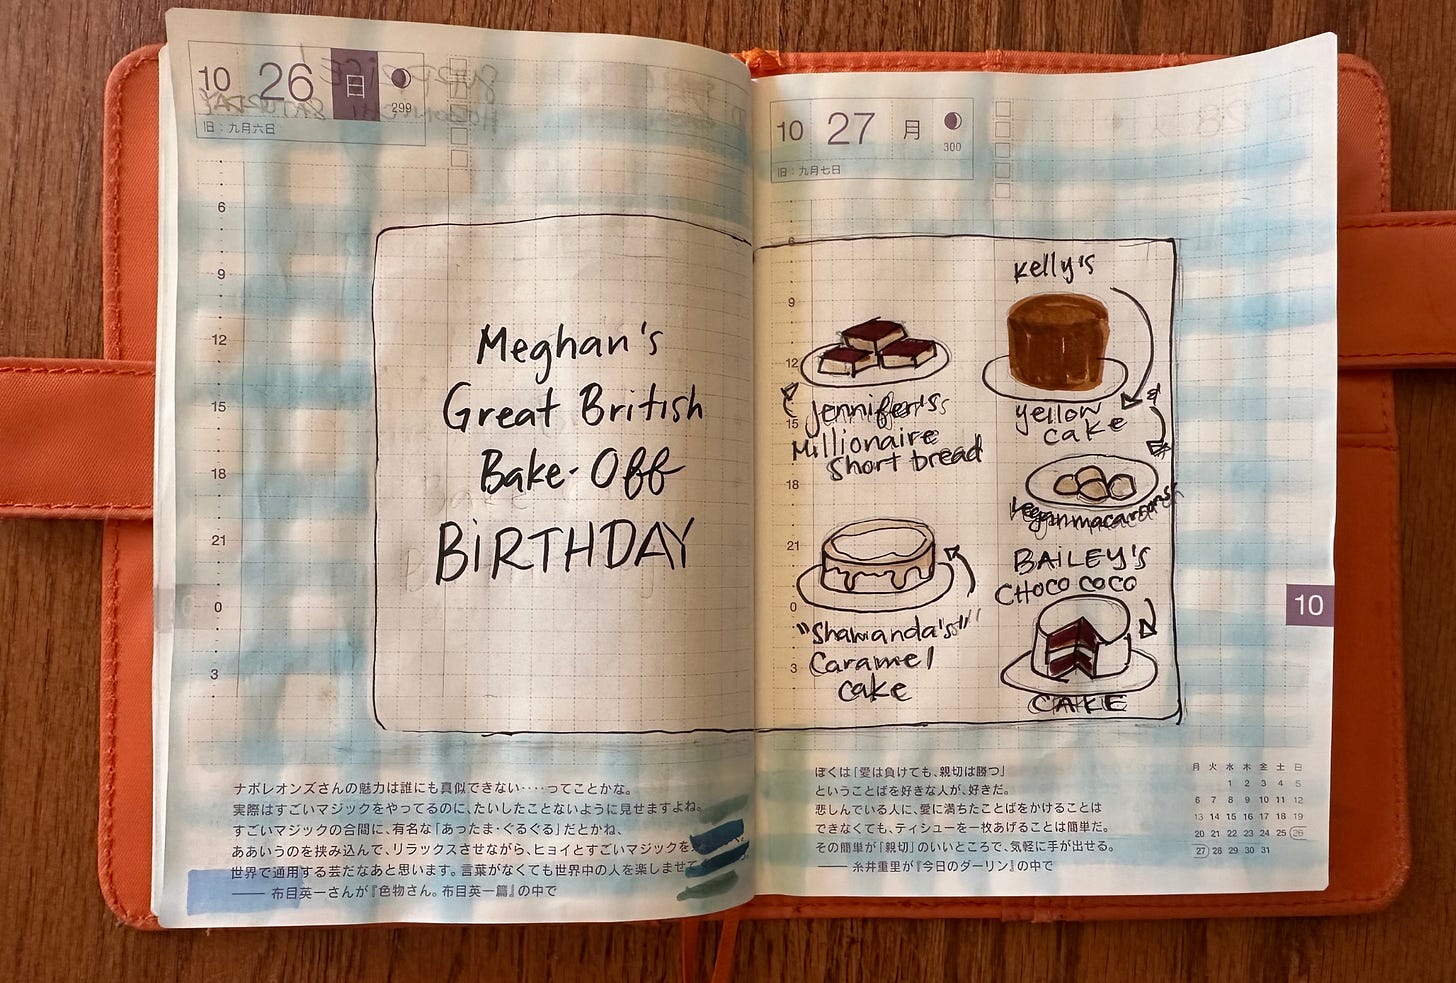 10 26 日
299
旧：九月六日
6
9
12
15
18
21
0
3
Meghan's
Great British
Bake-Off
BiRTHDAY
ナポレオンズさんの魅力は誰にも真似できない‥‥ってことかな。
実際はすごいマジックをやってるのに、たいしたことないように見せますよね。
すごいマジックの合間に、有名な「あったま・ぐるぐる」だとかね、
ああいうのを挟み込んで、リラックスさせながら、ヒョイとすごいマジックを
世界で通用する芸だなあと思います。言葉がなくても世界中の人を楽しませて
── 布目英一さんが『色物さん。布目英一篇』の中で
10 27 月
300
旧：九月七日
6
9
12
15
18
21
0
3
Kelly's
yellow
cake
&
Jennifer's
Millionaire
Short bread
vegan macarons
BAILEY'S
CHOCO COCO
CAKE
"Shawanda's"
Caramel
cake
10
ぼくは「愛は負けても、親切は勝つ」
ということばを好きな人が、好きだ。
悲しんでいる人に、愛に満ちたことばをかけることは
できなくても、ティシューを一枚あげることは簡単だ。
その簡単が「親切」のいいところで、気軽に手が出せる。
── 糸井重里が『今日のダーリン』の中で
月 火 水 木 金 土 日
1 2 3 4 5
6 7 8 9 10 11 12
13 14 15 16 17 18 19
20 21 22 23 24 25 26
27 28 29 30 31